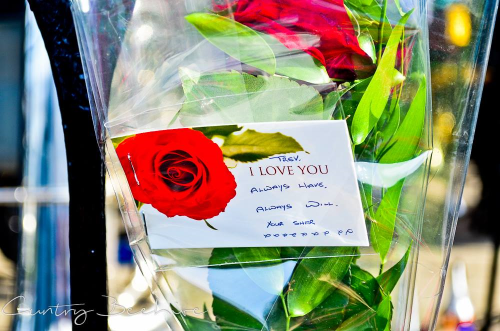 TREV,
I LOVE YOU
ALWAYS HAVE,
ALWAYS WILL.
YOUR SHER
Country